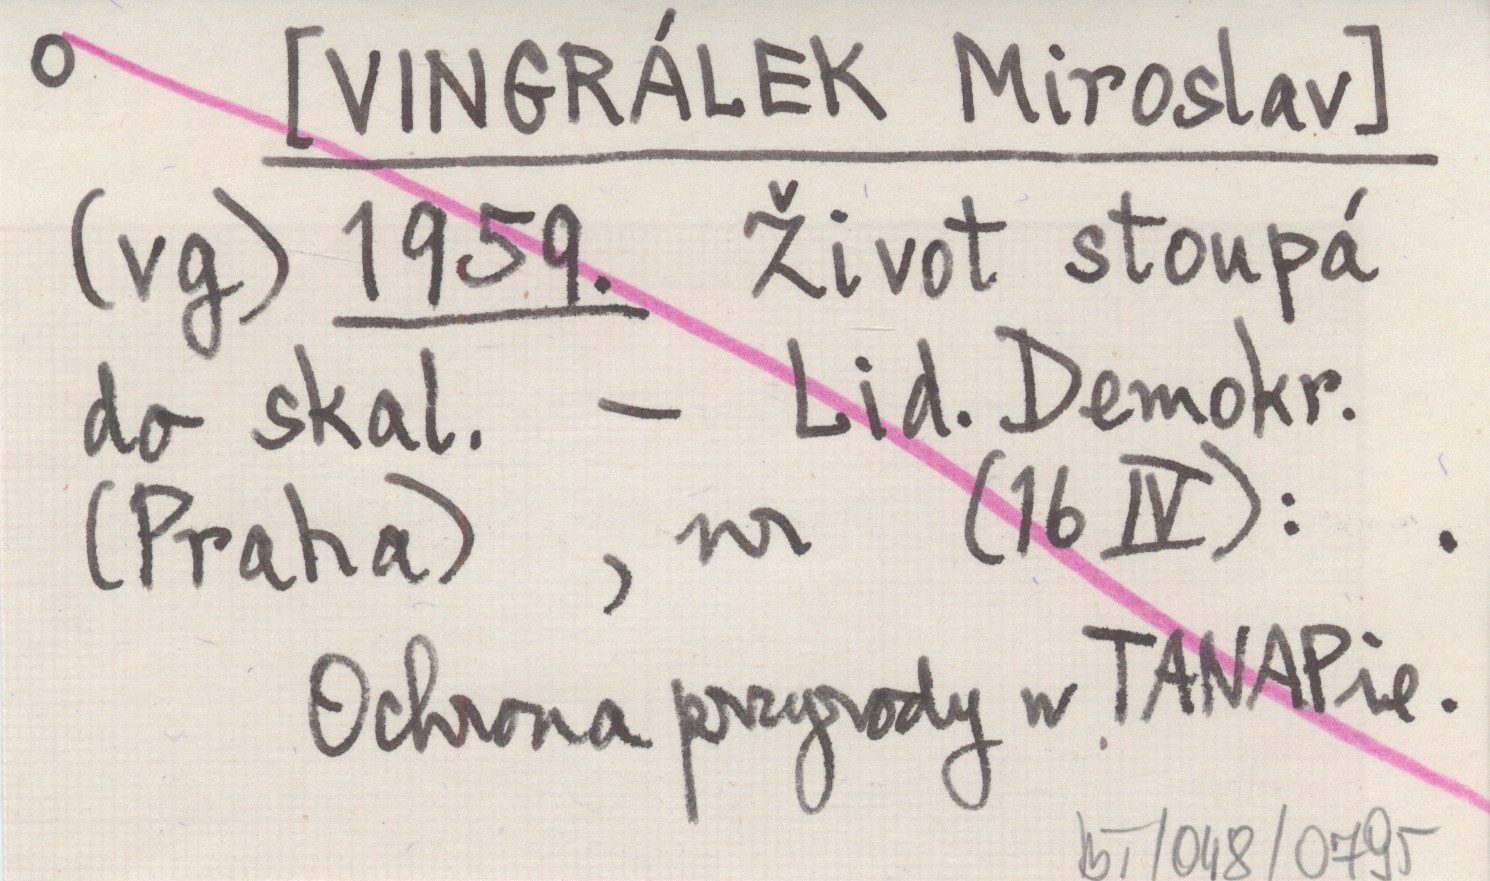 o [VINGRÁLEK Miroslav]
(vg) 1959. Život stoupá
do skal. — Lid. Demokr.
(Praha) , nr (16 IV): .
Ochrona przyrody w TANAPie.
bT/048/0795